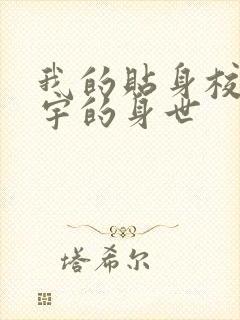 我的贴身校
宇的身世
塔希尔